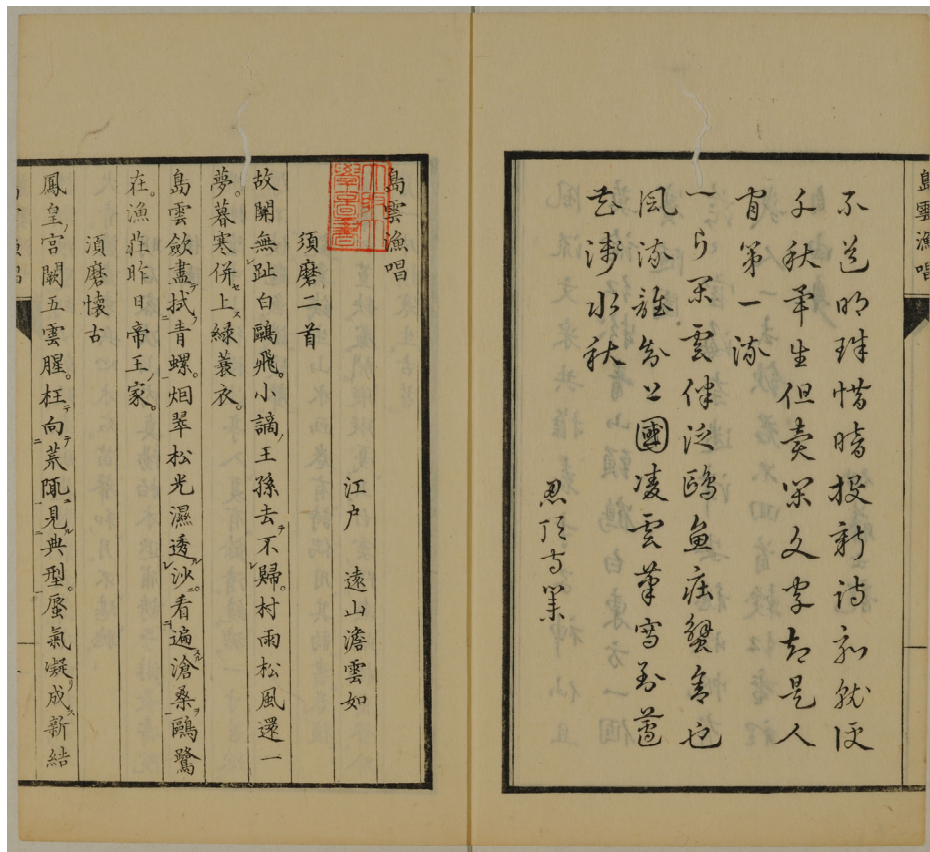 島雲漁唱
不道明珠惜暗投新詩刻就便
千秋平生但賣文字却是人
有第一流
一片雲伴泛鷗魚莊蟹舍也
風流誰知公國凌雲筆寫到蘆
花淺水秋
島雲漁唱
江戸 遠山澹雲如
須磨二首
故關無趾白鷗飛小謫王孫去不歸村雨松風還一
夢暮寒併上緑蓑衣
島雲歛盡拭青螺烟翠松光濕透沙看遍滄桑鷗鷺
在漁莊昨日帝王家
須磨懷古
鳳皇宮闕五雲腥枉向荒陬見典型蜃氣凝成新結